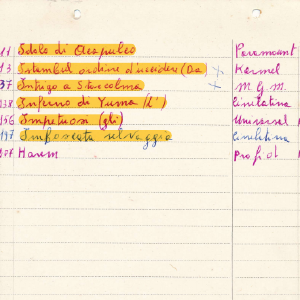 11 Idolo di Acapulco Paramount
13 Istambul ordine d'uccidere (Da) x Karmel
37 Intrigo a Stoccolma x M.G.M.
138 Inferno di Yuma (L') Cinelatina
156 Impetuosi (gli) Universal
197 Imboscata selvaggia Cinelatina
207 Harem